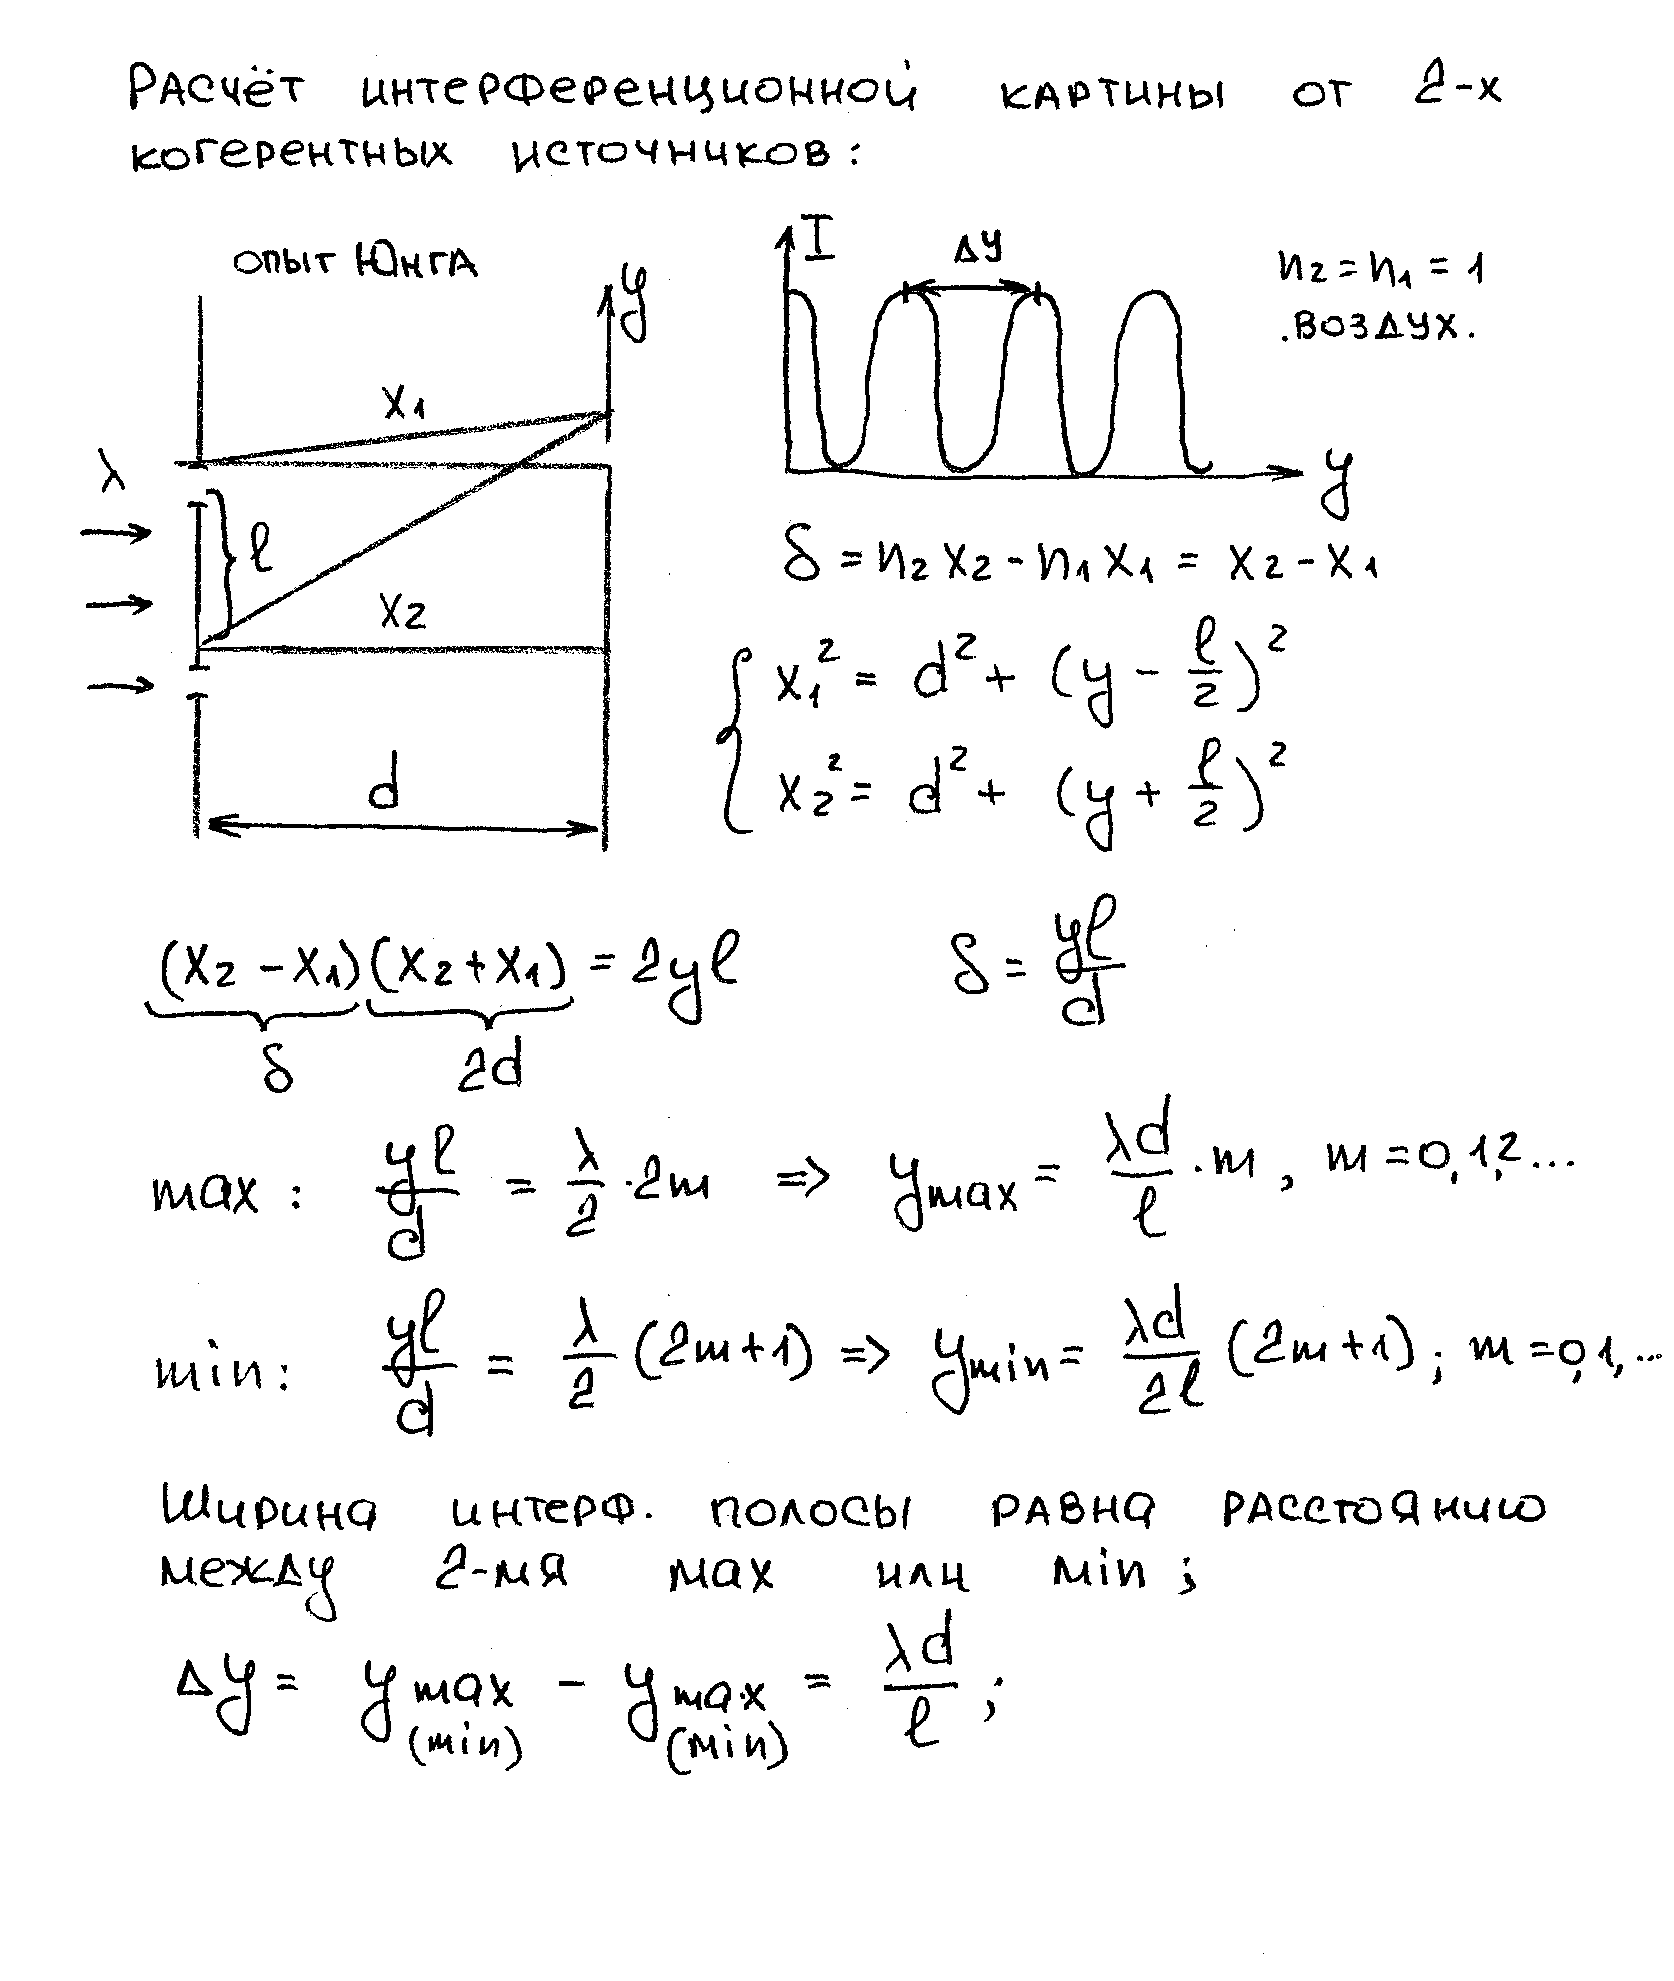 Расчёт интерференционной картины от 2-х
когерентных источников:
опыт Юнга
y
x₁
λ
l
x₂
d
I
Δy
y
n₂ = n₁ = 1
.воздух.
δ = n₂x₂ - n₁x₁ = x₂ - x₁
x₁² = d² + (y - l/2)²
x₂² = d² + (y + l/2)²
(x₂ - x₁)(x₂ + x₁) = 2yl
δ 2d
δ = yl/d
max: yl/d = λ/2 · 2m => y max = λd/l · m, m = 0,1,2...
min: yl/d = λ/2 (2m+1) => y min = λd/2l (2m+1); m = 0,1,...
Ширина интерф. полосы равна расстоянию
между 2-мя max или min;
Δy = y max (min) - y max (min) = λd/l;